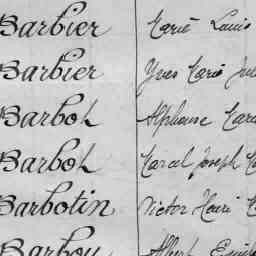 Barbier Marie Louis
Barbier Yves Marie
Barbot Alphonse
Barbot Marcel Joseph
Barbotin Victor Henri
Barbou Albert Emile